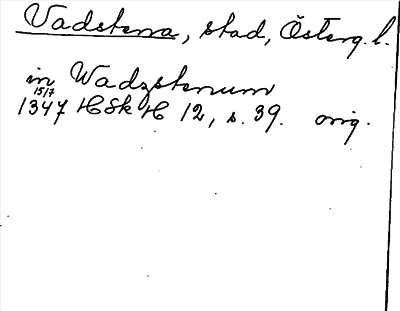 Vadstena, stad, Österg. l.
in Wadzstenum
15/7
1347 HSk H 12, s. 39. orig.